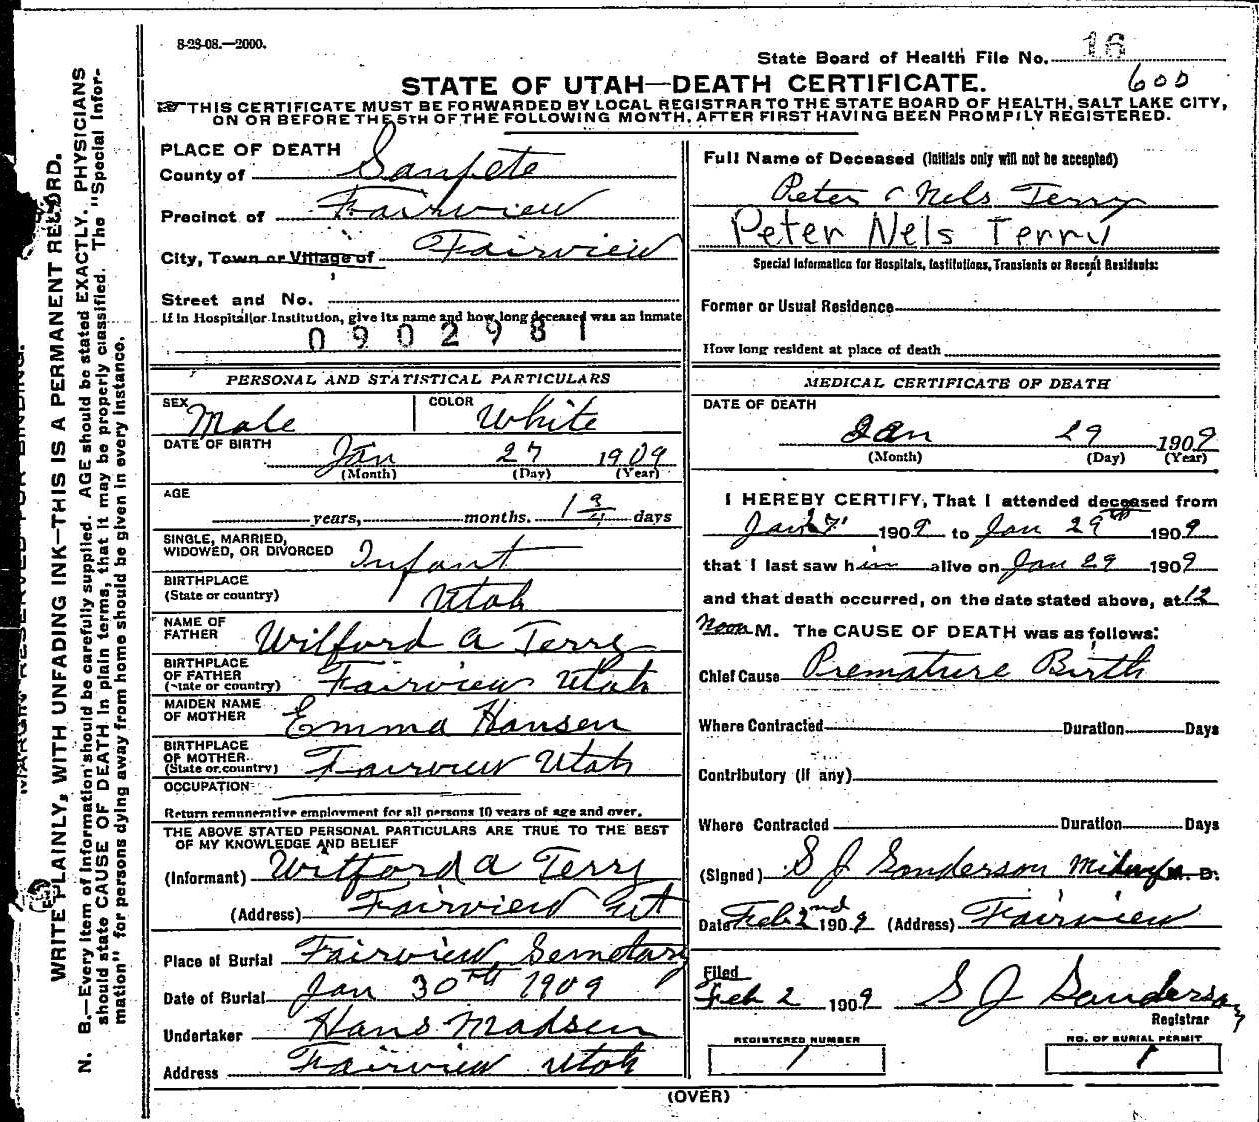 8-28-08.—2000.
State Board of Health File No. 16
600
STATE OF UTAH—DEATH CERTIFICATE.
THIS CERTIFICATE MUST BE FORWARDED BY LOCAL REGISTRAR TO THE STATE BOARD OF HEALTH, SALT LAKE CITY,
ON OR BEFORE THE 5TH OF THE FOLLOWING MONTH, AFTER FIRST HAVING BEEN PROMPILY REGISTERED.
PLACE OF DEATH
County of Sanpete
Precinct of Fairview
City, Town or Village of Fairview
Street and No.
If in Hospital or Institution, give its name and how long deceased was an inmate
0902981
PERSONAL AND STATISTICAL PARTICULARS
SEX Male COLOR White
DATE OF BIRTH Jan 27 1909
(Month) (Day) (Year)
AGE
years, months. 1 3/4 days
SINGLE, MARRIED,
WIDOWED, OR DIVORCED Infant
BIRTHPLACE
(State or country) Utah
NAME OF
FATHER Wilford A Terry
BIRTHPLACE
OF FATHER
(State or country) Fairview Utah
MAIDEN NAME
OF MOTHER Emma Hansen
BIRTHPLACE
OF MOTHER
(State or country) Fairview Utah
OCCUPATION
Return remunerative employment for all persons 10 years of age and over.
THE ABOVE STATED PERSONAL PARTICULARS ARE TRUE TO THE BEST
OF MY KNOWLEDGE AND BELIEF
(Informant) Wilford A Terry
(Address) Fairview Ut
Place of Burial Fairview Semetary
Date of Burial Jan 30th 1909
Undertaker Hans Madsen
Address Fairview Utah
Full Name of Deceased (Initials only will not be accepted)
Peter Nels Terry
Peter Nels Terry
Special Information for Hospitals, Institutions, Transients or Recent Residents:
Former or Usual Residence
How long resident at place of death
MEDICAL CERTIFICATE OF DEATH
DATE OF DEATH
Jan 29 1909
(Month) (Day) (Year)
I HEREBY CERTIFY, That I attended deceased from
Jan 27 1909 to Jan 29th 1909
that I last saw him alive on Jan 29 1909
and that death occurred, on the date stated above, at 12
Noon M. The CAUSE OF DEATH was as follows:
Chief Cause Premature Birth
Where Contracted Duration Days
Contributory (if any)
Where Contracted Duration Days
(Signed) S J Sanderson Midwife M. D.
Date Feb 2nd 1909 (Address) Fairview
Filed
Feb 2 1909 S J Sanderson
Registrar
REGISTERED NUMBER NO. OF BURIAL PERMIT
1 1
(OVER)
MARGIN RESERVED FOR BINDING.
WRITE PLAINLY, WITH UNFADING INK—THIS IS A PERMANENT RECORD.
N. B.—Every item of information should be carefully supplied. AGE should be stated EXACTLY. PHYSICIANS
should state CAUSE OF DEATH in plain terms, that it may be properly classified. The "Special Infor-
mation" for persons dying away from home should be given in every instance.